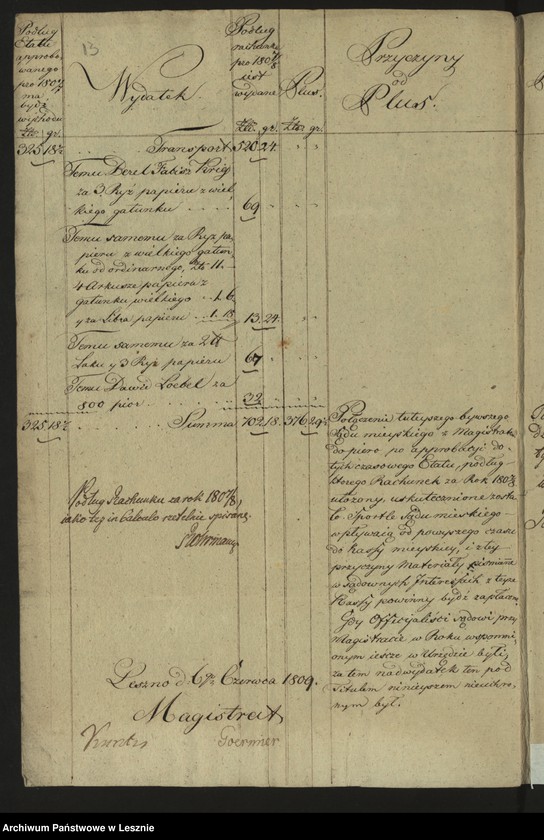 13
Podług
Etatu
approbo
wanego
pro 1807/8
ma
bydź
wychodu
Złt. gr.
Wydatek
Podług
rachunku
pro 1807/8
jest
wydane
Złt. gr.
Plus.
Złt. gr.
Przyczyny
od
Plus.
325 18½ Transport 520 24
Temu Berel Fabisz Krig
za 3. Ryż papieru z wiel
kiego gatunku 69
Temu samemu za Ryż pa
pieru z wielkiego gatun
ku od ordinarnego, Złt 11.
4 Arkusze papieru z
gatunku wielkiego 1. 6
y za Libra papieru 1. 18 13 24
Temu samemu za 2 ℔
Laku y 3 Ryż papieru 67
Temu Dawid Loebel za
800 pior 32
325 18½ Summa 702 18 376 29½
Połączenie tuteyszego bywszego
Sądu mieyskiego z Magistratu
do piero po approbacyi do-
tychczasowego Etatu, podług
ktorego Rachunek za Rok 1807/8
ułożony, uskutecznione zosta
ło. Sportle Sądu mieyskiego
wpływaią od powyszego czasu
do Kassy mieyskiey, i z tey
przyczyny Materiały pismienne
w sądownych Interessach z teyze
Kassy powinny bydź zapłacone
Gdy Officjaliści sądowi przy
Magistracie w Roku wspomni
onym ieszcze w Urzędzie byli,
za tem nadwydatek ten pod
Titulem ninieyszem nieuchro
nym był.
Podług Rachunku za rok 1807/8,
iako też in Calculo rzetelnie spisane
Leszno d. Czerwca 1809.
Magistrat
Goermer
Archiwum Państwowe w Lesznie